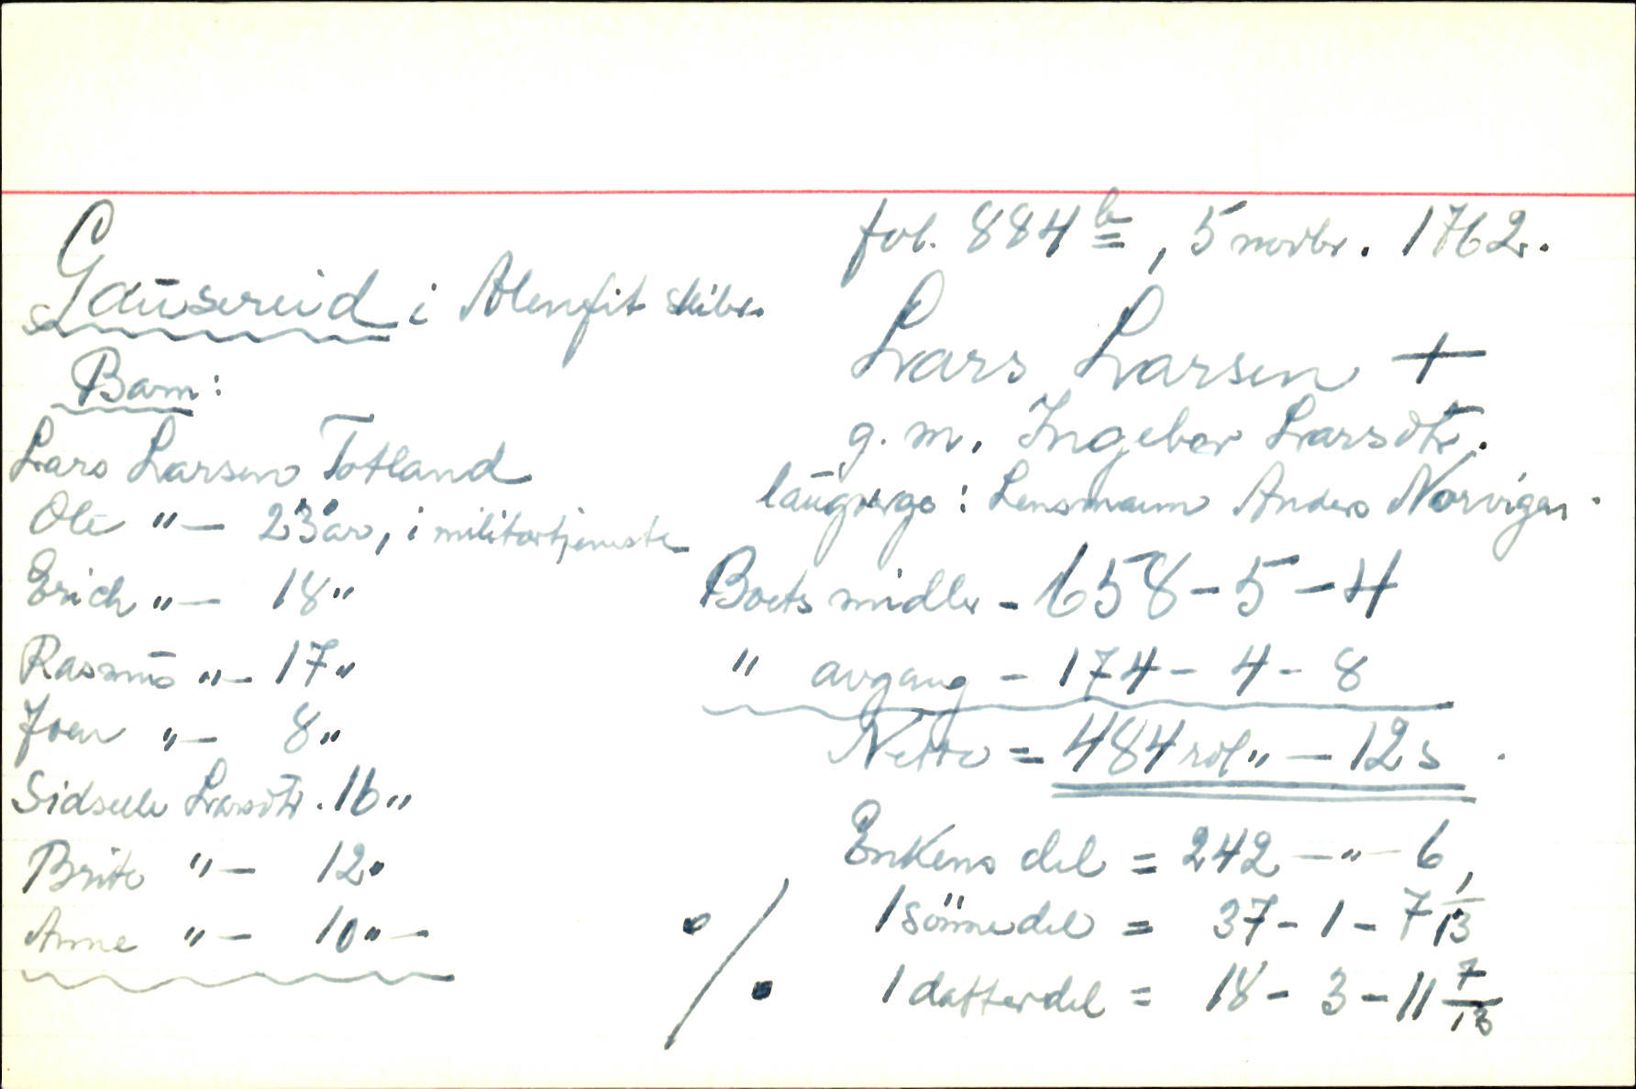 fol. 884 b, 5 novbr. 1762.
Gausereid i Alenfit skibr.
Lars Larsen +
Barn:
g. m. Ingebor Larsdtr.
Lars Larsen Totland
laugverge: Lensmann Anders Norvigen.
Ole "— 23 år, i militærtjeneste
Boets midler - 658 - 5 - 4
Erich "— 18 "
" avgang - 174 - 4 - 8
Rasmus "— 17 "
Netto = 484 rdl " — 12 s.
Joen "— 8 "
Sidselle Larsdtr. 16 "
Enkens del = 242 — " — 6,
Brite "— 12 "
1 sönnedel = 37 - 1 - 7 1/13
Anne "— 10 " —
1 datterdel = 18 - 3 - 11 7/13